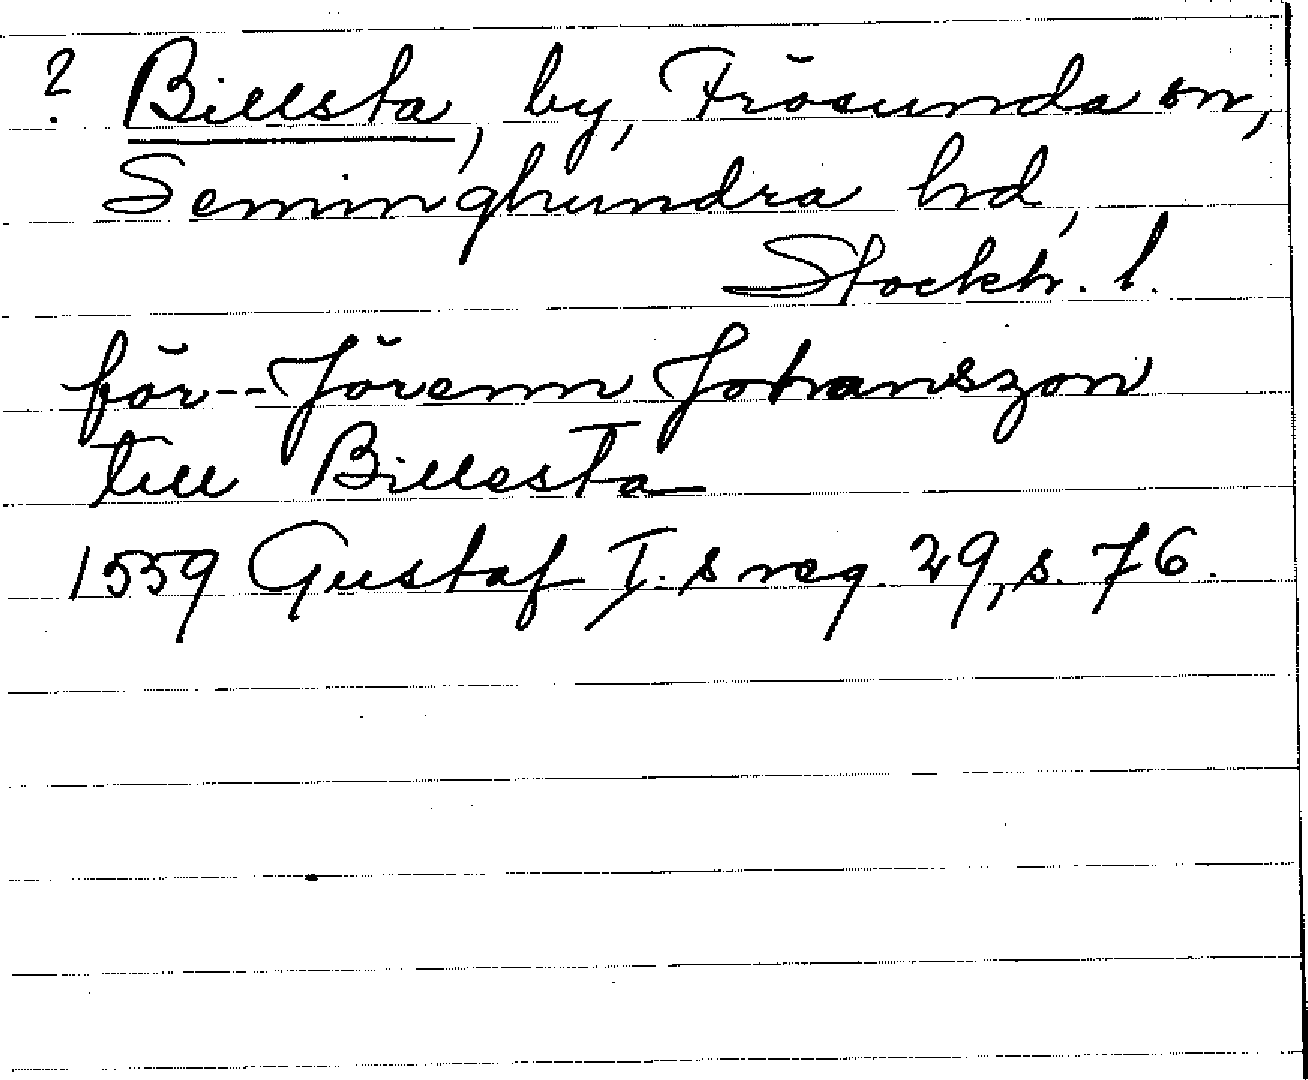 ? Billsta, by, Frösunda sn,
Seminghundra hd,
Stockh. l.
för -- Jörenn Johanszon
till Billesta
1559 Gustaf I. s reg. 29, s. 76.